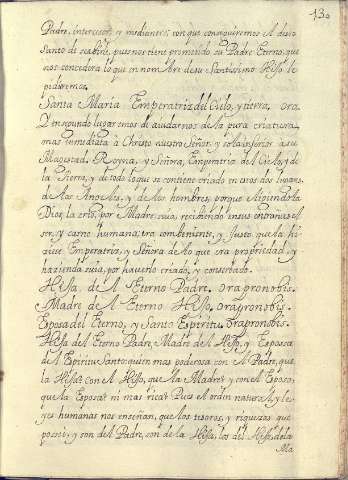 130
Padre, intercesor, y mediante, con que
Santo de pues nos tiene prometido su Padre Eterno, que
nos concedera lo que en nombre de su Santissimo Hijo le
pidieremos.
Santa Maria Emperatriz del Cielo, y tierra, ora.
en segundo lugar emos de ayudarnos de la pura criatura
mas inmediata à Christo nuestro Señor, y sola inferior à su
Magestad, Reyna, y Señora, Emperatriz del Cielo, y de
la tierra, y de todo lo que se contiene criado en esos dos lugares,
de los Angeles, y de los hombres, porque
Dios la por Madre suia, recibiendo en sus entrañas el
ser, y carne humana, era combeniente, y Justo, que la hi
ziese Emperatriz, y Señora de lo que era propriedad, y
hazienda suia, por haverlo criado, y conserbado.
Hija de el Eterno Padre, ora pro nobis.
Madre de el Eterno Hijo, ora pro nobis.
Esposa del Eterno, y Santo Espiritu, ora pro nobis.
Hija del Eterno Padre, Madre de el Hijo, y Esposa
de el Espiritu Santo: quien mas poderosa con el Padre, que
la Hija? con el Hijo, que la Madre? y con el Esposo,
que la Esposa? ni mas rica? Pues el orden natural, y le
yes humanas nos enseñan, que los tesoros, y riquezas que
posehe, y son de el Padre, son de la Hija, los del Hijo, de la
Ma